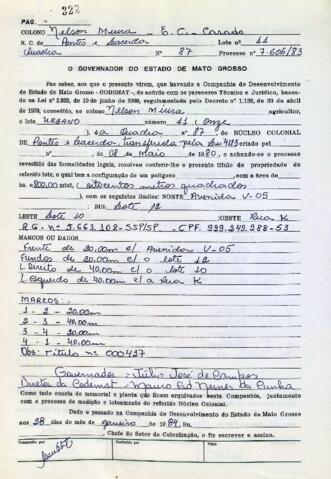 PAG. 323
COLONO Nelson Miura - E.C. - Casado
N. C. de Pontes e Lacerda LOTE nº 11
Quadra Nº 87 Processo nº 7.606/83
O GOVERNADOR DO ESTADO DE MATO GROSSO
Faz saber, aos que o presente virem, que havendo a Companhia de Desenvolvimento
do Estado de Mato Grosso - CODEMAT -, de acôrdo com os pareceres Técnico e Jurídico, basea-
do na Lei nº de 19 de junho de 1969, regulamentada pelo Decreto nº 1.138, de 30 de abril
de 1970, concedido ao Nelson Miura agricultor,
o lote URBANO número 11 (Onze
) da Quadra nº 87 do NÚCLEO COLONIAL
de Pontes e Lacerda, Transferida pela Lei 4113 criado pelo
nº de 08 de Maio de 1980, e achando-se o processo
revestido das formalidades legais, resolveu conferir-lhe o presente título de propriedade do
referido lote, o qual tem a configuração de um polígono com a área de
800,00 m² (oitocentos metros quadrados
), com os seguintes limites: NORTE Avenida V-05
: SUL: Lote 12
LESTE Lote 10 :OESTE Rua K
R.G. nº 5.663.108-SSP/SP. CPF. 999.249.288-53
MARCOS OU DADOS
Frente de 20,00m c/ Avenida V-05
Fundos de 20,00m c/ o lote 12
L. Direito de 40,00m c/ o lote 10
L. Esquerdo de 40,00m c/ a Rua K
MARCOS:
1 - 2 - 20,00m
2 - 3 - 40,00m
3 - 4 - 20,00m
4 - 1 - 40,00m
Obs: Título nº 000427
Governador - Júlio José de Campos
Diretor da Codemat - Mauro Cid Nunes da Cunha
Como tudo consta do memorial e planta que ficam arquivados nesta Companhia, juntamente
com o processo de medição e loteamento do referido Núcleo Colonial.
Dado e passado na Companhia de Desenvolvimento do Estado de Mato Grosso
aos 28 dias do mês de janeiro de 1984, Eu,
, Chefe do Setor de Colonização, o fiz escrever e assino.